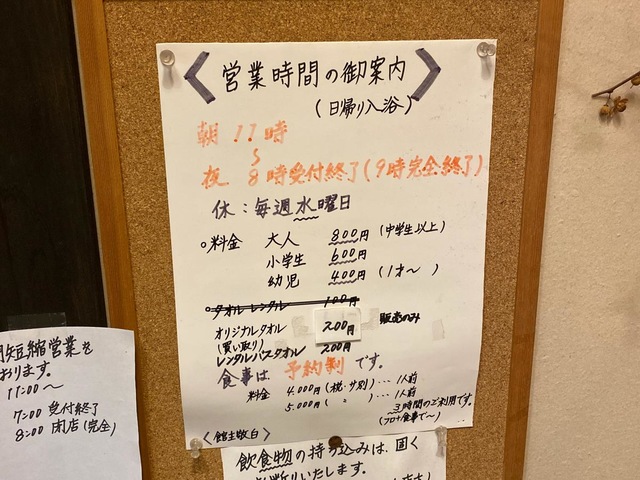 〈営業時間の御案内〉
(日帰り入浴)
朝 11時
〜
夜 8時受付終了(9時完全終了)
休:毎週水曜日
○料金 大人 800円 (中学生以上)
小学生 600円
幼児 400円 (1才〜 )
○タオルレンタル 100円
オリジナルタオル 200円 販売のみ
(買い取り)
レンタルバスタオル 200円
食事は 予約制 です。
料金 4.000円(税・サ別)… 1人前
5.000円( 〃 )… 1人前
3時間のご利用です。
(フロ+食事で〜)
〈館主敬白〉
短縮営業を
おります。
11:00〜
7:00 受付終了
8:00 閉店(完全)
飲食物の持ち込みは、固く
いたします。